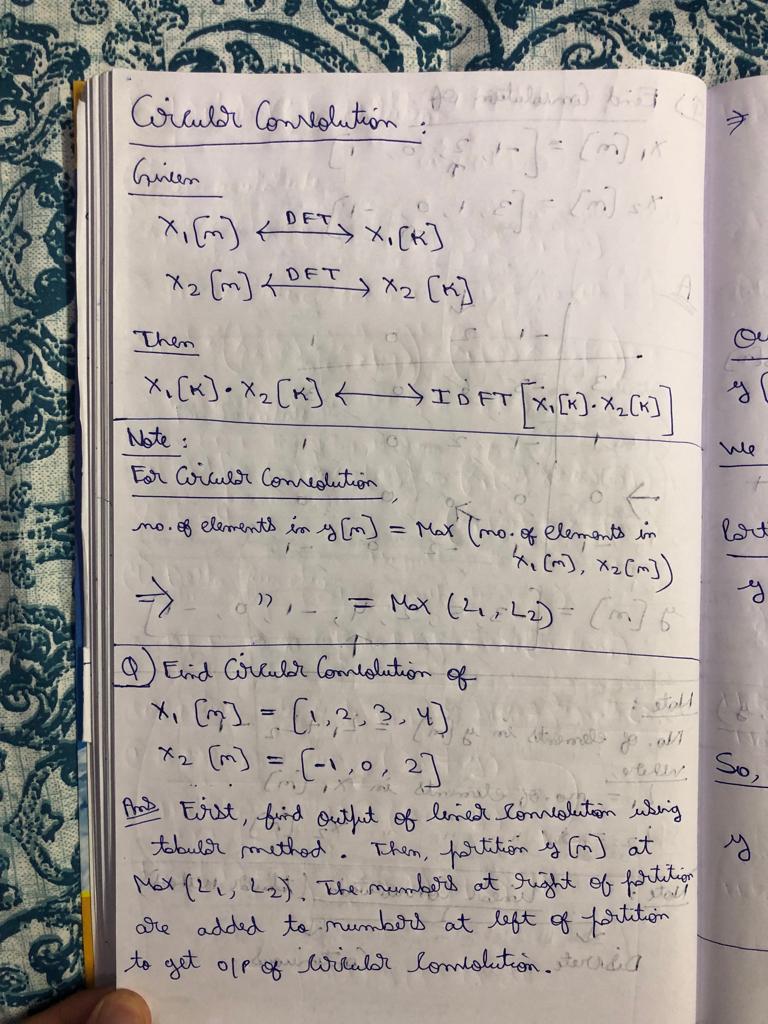 Circular Convolution :
Given
x₁[n] ⟷ DFT x₁[K]
x₂[n] ⟷ DFT x₂[K]
Then
x₁[K] . x₂[K] ⟷ IDFT [x₁[K] . x₂[K]]
Note :
For Circular Convolution,
no. of elements in y[n] = Max (no. of elements in
x₁[n], x₂[n])
⇒ " = Max (L₁, L₂)
Q) Find Circular Convolution of
x₁[n] = [1, 2, 3, 4]
x₂[n] = [-1, 0, 2]
Ans First, find output of linear convolution using
tabular method. Then, partition y[n] at
Max (L₁, L₂). The numbers at right of partition
are added to numbers at left of partition
to get o/p of circular convolution.
⇒
y[
We
y
So,
y